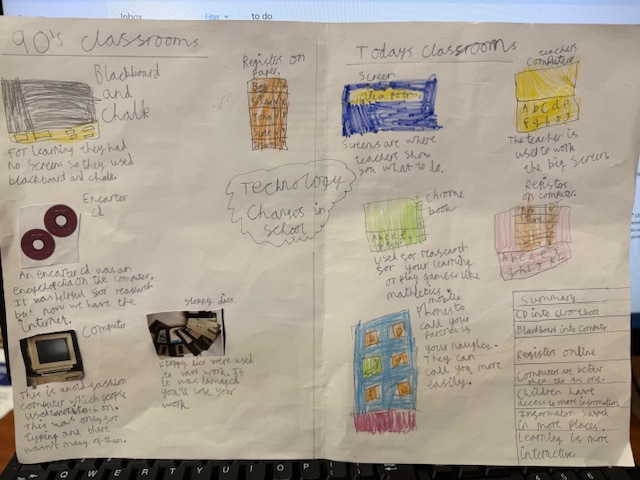 Inbox
Filter
to do
90's classrooms
Blackboard
and
Chalk
Register on
paper.
For learning they had
no screens so they used
blackboard and chalk.
Encarter
cd
An Encarter cd was an
encyclopedia on the computer.
It was helpful for reasearch
but now we have the
internet.
Computer
This is an old fashion
computer which people
used
This was only for
typing and there
wasn't many of them.
floppy dics.
Floppy dics were used
to save work. If
it was damaged
you'll lose your
work.
Technology
Changes in
school
Todays classrooms
Screen
Screens are where
teachers show
you what to do.
teachers
computer
A b C d e
The teacher is
used to work
the big screen.
chrome
book
Used for reasearch
for your learning
or play games like
mathletics.
Register
on computer.
mobile
Phones to
call your
parents if
your naughty.
They can
call you more
easily.
Summary
CD into chromebook
Blackboard into computer
Registers online
Computers are better
then the old one.
Children have
access to more information
Information saved
in more places.
Learning is more
interactive.
Q W E R T Y U I O P